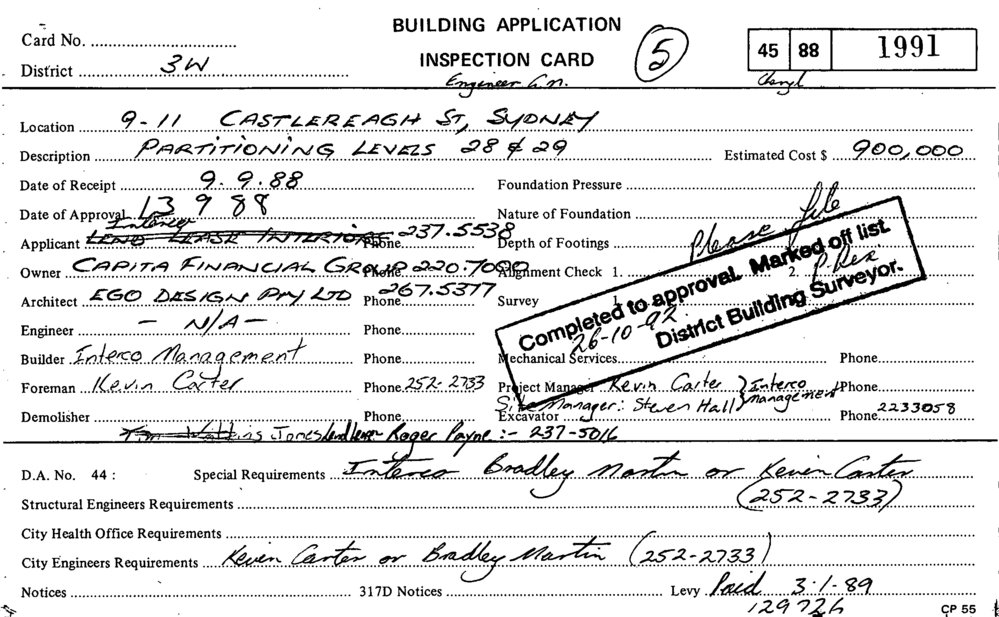 BUILDING APPLICATION
INSPECTION CARD
Card No.
District 3W
5
45 88 1991
Engineer G.N.
Cheryl
Location 9-11 CASTLEREAGH ST, SYDNEY
Description PARTITIONING LEVELS 28 & 29 Estimated Cost $ 900,000
Date of Receipt 9.9.88 Foundation Pressure
Date of Approval 13 9 88 Nature of Foundation Please file
Interco
Applicant LEND LEASE INTERIORS Phone 237.5538 Depth of Footings
Owner CAPITA FINANCIAL GROUP Phone 220.7000 Alignment Check 1. 2. P. Rex
Architect EGO DESIGN PTY LTD Phone 267.5377 Survey 1.
Completed to approval. Marked off list.
26-10-92 District Building Surveyor.
Engineer - N/A - Phone
Builder Interco Management Phone Mechanical Services Phone
Foreman Kevin Carter Phone 252-2733 Project Manager Kevin Carter } Interco management Phone
Site Manager: Steven Hall
Demolisher Phone Excavator Phone 2233058
Watkins Jones Lend Lease Roger Payne :- 237-5016
D.A. No. 44 : Special Requirements Interco Bradley Martin or Kevin Carter
Structural Engineers Requirements (252-2733)
City Health Office Requirements
City Engineers Requirements Kevin Carter or Bradley Martin (252-2733)
Notices 317D Notices Levy Paid 3.1.89
129726
CP 55